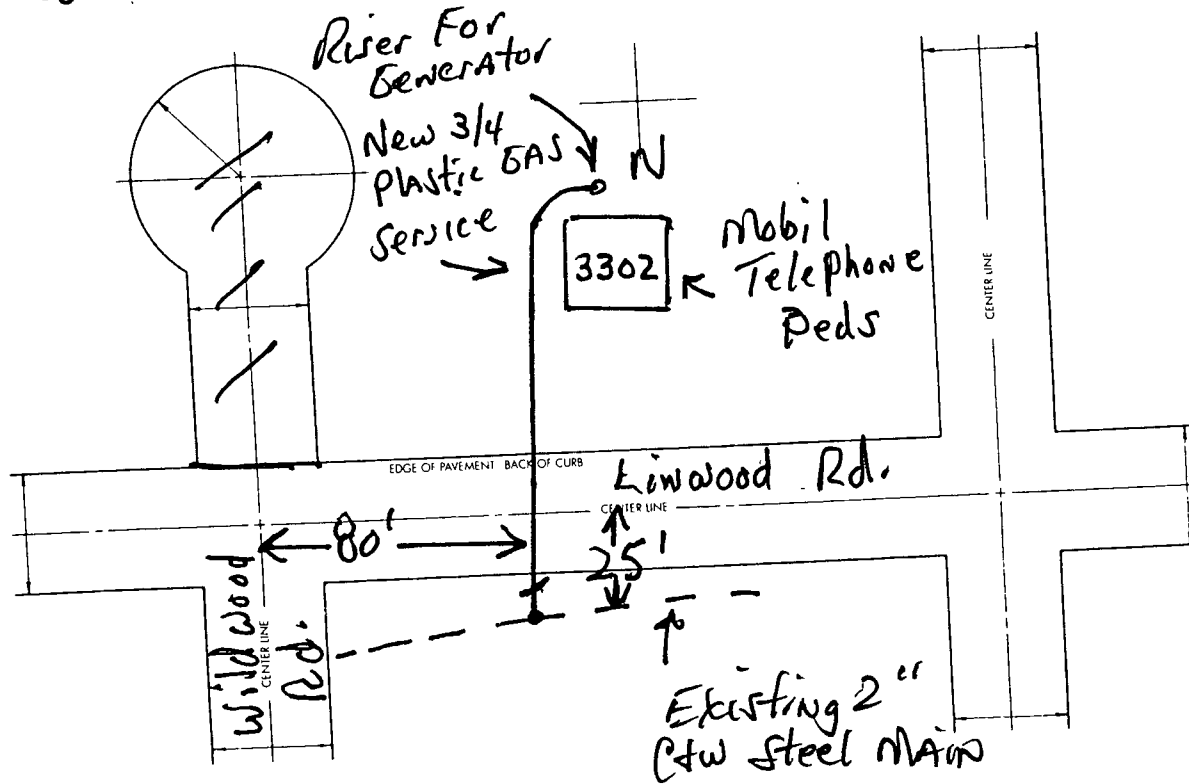 Riser For
Generator
New 3/4
Plastic GAS
Service
N
3302
Mobil
Telephone
Peds
CENTER LINE
EDGE OF PAVEMENT BACK OF CURB
Linwood Rd.
CENTER LINE
80'
25'
Wildwood
Rd.
CENTER LINE
Existing 2"
C+W Steel MAIN